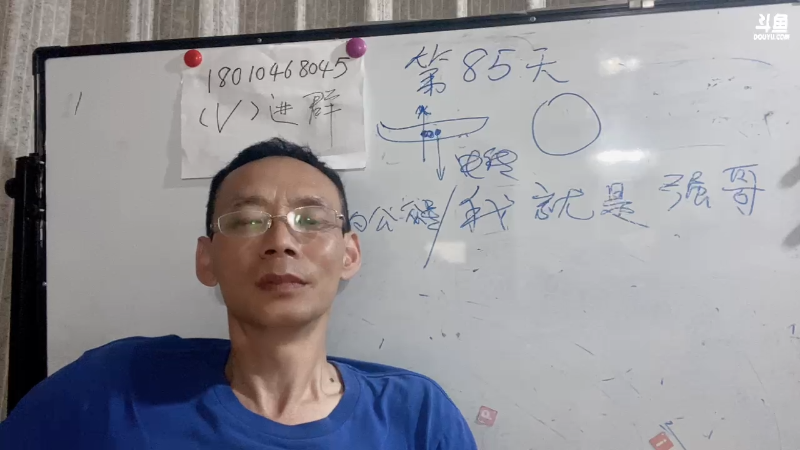 斗鱼
DOUYU.COM
18010468045
(V)进群
第85天
我就是强哥